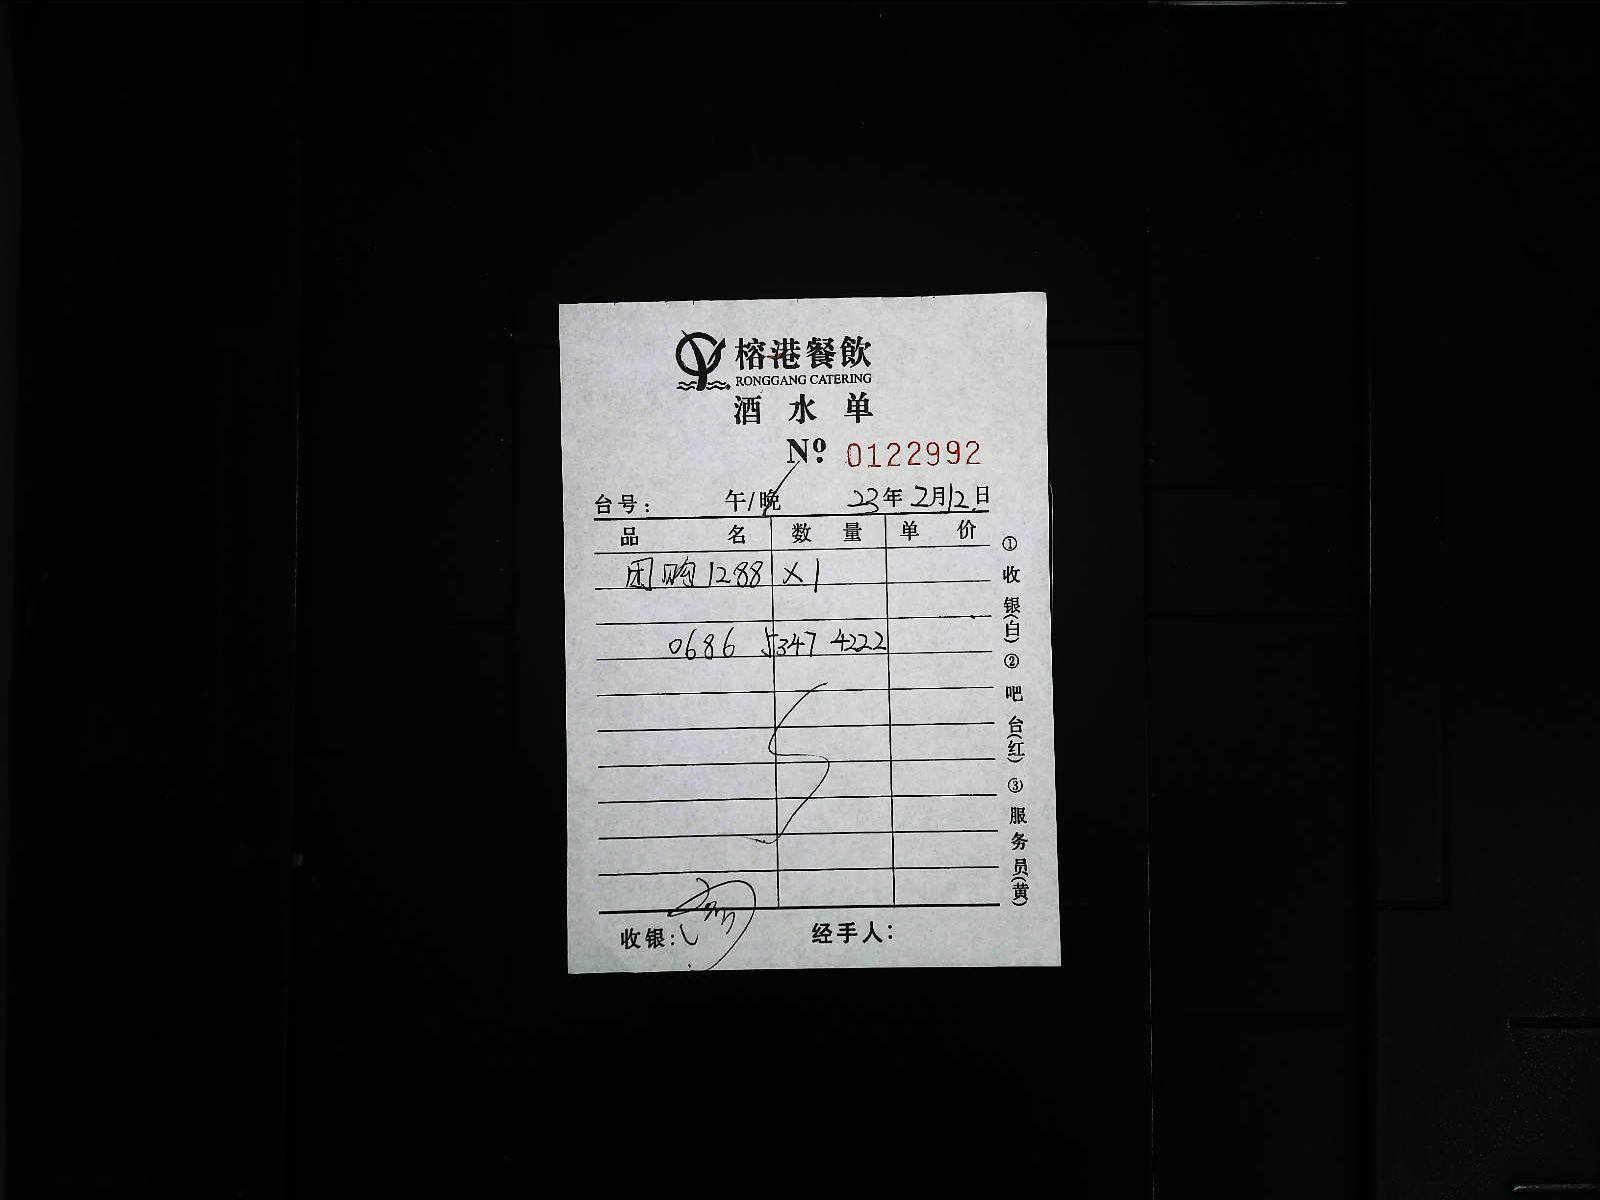 榕港餐飲
RONGGANG CATERING
酒水单
№ 0122992
台号: 午/晚 23年2月12日
品名 数量 单价
团购1288 ×1
0686 5347 4222
收银: 经手人:
①收银(白)②吧台(红)③服务员(黄)